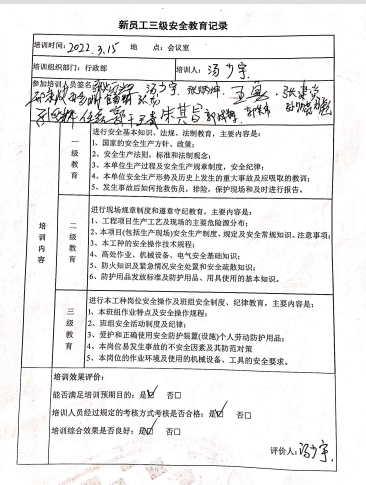 新员工三级安全教育记录
培训时间：2022.3.15 地 点：会议室
培训组织部门：行政部 培训人：冯少宇
参加培训人员签名
一级教育
进行安全基本知识、法规、法制教育，主要内容是：
1、国家的安全生产方针、政策；
2、安全生产法规、标准和法制观念；
3、本单位生产过程及安全生产规章制度，安全纪律；
4、本单位安全生产形势及历史上发生的重大事故及应吸取的教训；
5、发生事故后如何抢救伤员，排险，保护现场和及时进行报告。
培训内容
二级教育
进行现场规章制度和遵章守纪教育，主要内容是：
1、工程项目生产工艺及现场的主要危险源分布；
2、本项目(包括生产现场)安全生产制度、规定及安全常规知识、注意事项；
3、本工种的安全操作技术规程；
4、高处作业、机械设备、电气安全基础知识；
5、防火知识及紧急情况安全处置和安全疏散知识；
6、防护用品发放标准及防护用品、用具使用的基本知识。
三级教育
进行本工种岗位安全操作及班组安全制度、纪律教育，主要内容是：
1、本班组作业特点及安全操作规程；
2、班组安全活动制度及纪律；
3、爱护和正确使用安全防护装置(设施)个人劳动防护用品；
4、本岗位易发生事故的不安全因素及其防范对策
5、本岗位的作业环境及使用的机械设备、工具的安全要求。
培训效果评价：
能否满足培训预期目的：是☑ 否□
培训人员经过规定的考核方式考核是否合格：是☑ 否□
培训综合效果是否良好：是☑ 否□
评价人：冯少宇